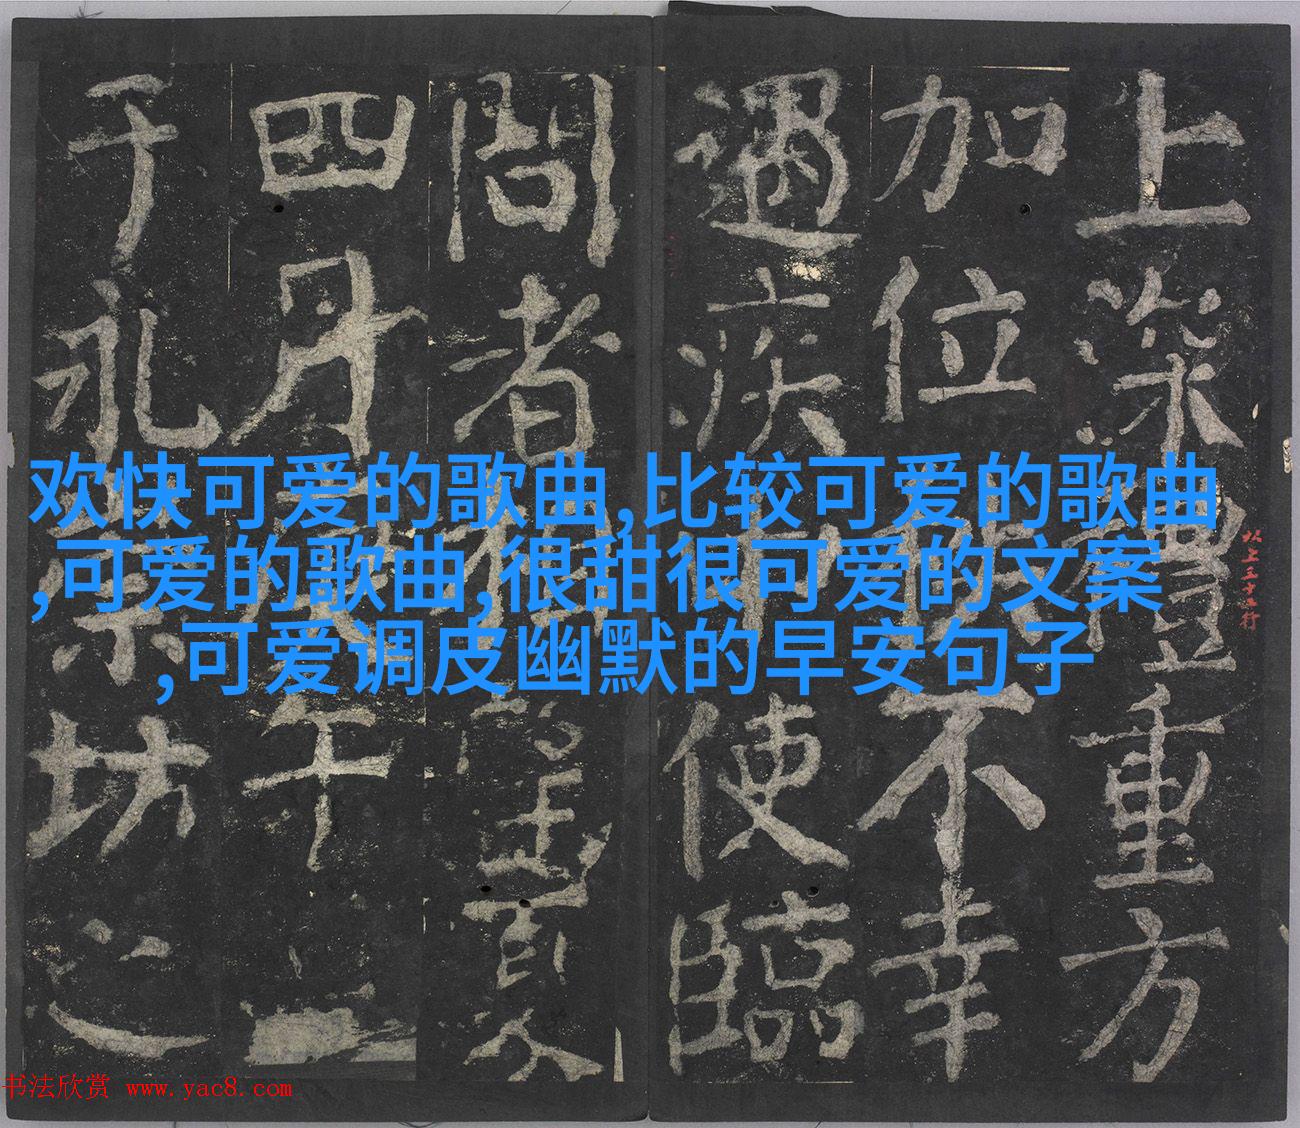 上深禮重方
加位不幸
遇疾使臨
問者相望夏
四月午
于永坊之
以上
欢快可爱的歌曲,比较可爱的歌曲
,可爱的歌曲,很甜很可爱的文案
,可爱调皮幽默的早安句子
书法欣赏 www.yac8.com